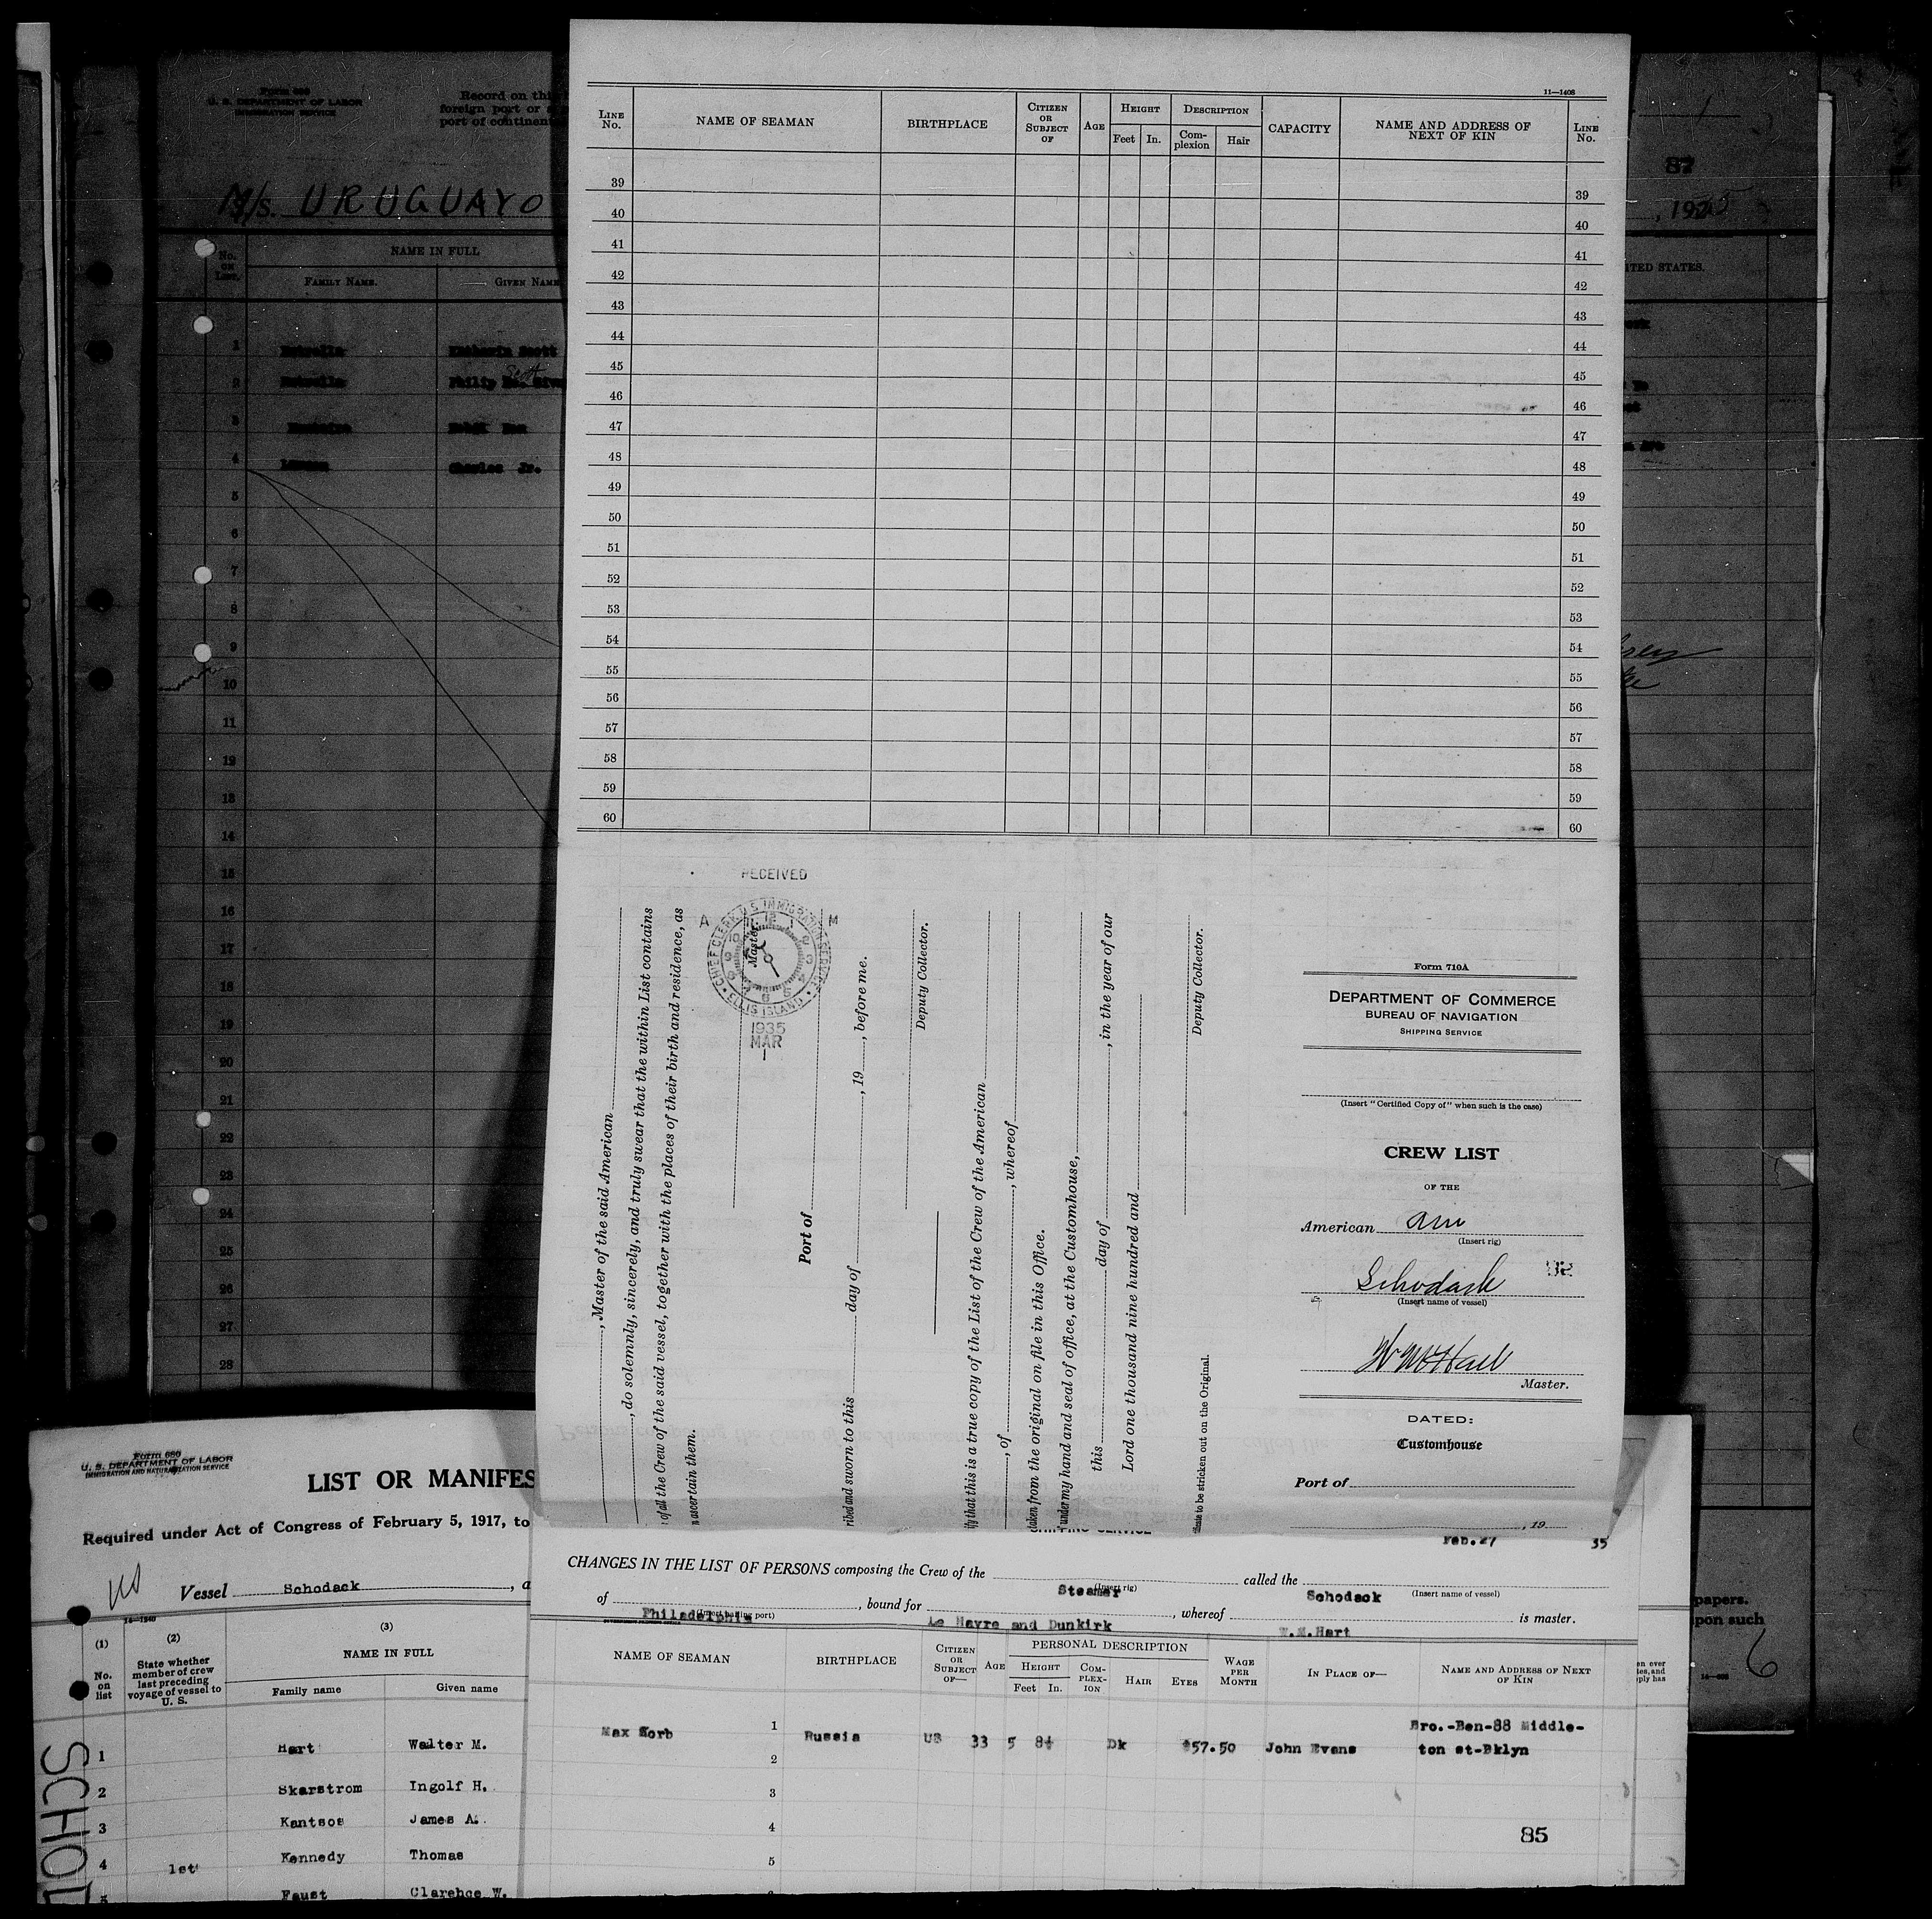 Form 689
U. S. DEPARTMENT OF LABOR
IMMIGRATION SERVICE
Record on this
foreign port or
port of continent
M/s. URUGUAYO
No. on List.
NAME IN FULL
FAMILY NAME.
GIVEN NAME
1
2
Scott
3
4
Charles Jr.
5
6
7
8
9
10
11
12
13
14
15
16
17
18
19
20
21
22
23
24
25
26
27
28
87
, 1935
ITED STATES.
11—1408
LINE No.
NAME OF SEAMAN
BIRTHPLACE
CITIZEN OR SUBJECT OF
AGE
HEIGHT
Feet
In.
DESCRIPTION
Com-plexion
Hair
CAPACITY
NAME AND ADDRESS OF NEXT OF KIN
LINE No.
39 39
40 40
41 41
42 42
43 43
44 44
45 45
46 46
47 47
48 48
49 49
50 50
51 51
52 52
53 53
54 54
55 55
56 56
57 57
58 58
59 59
60 60
RECEIVED
A M
CHIEF CLERK U S IMMIGRATION SERVICE
ELLIS ISLAND
1935
MAR
1
, Master of the said American
, do solemnly, sincerely, and truly swear that the within List contains
of all the Crew of the said vessel, together with the places of their birth and residence, as
n ascertain them.
Master.
Port of
ribed and sworn to this day of , 19 , before me.
Deputy Collector.
ify that this is a true copy of the List of the Crew of the American
, of , whereof
taken from the original on file in this Office.
under my hand and seal of office, at the Customhouse,
this day of , in the year of our
Lord one thousand nine hundred and
Deputy Collector.
ificate to be stricken out on the Original.
Form 710A
DEPARTMENT OF COMMERCE
BUREAU OF NAVIGATION
SHIPPING SERVICE
(Insert "Certified Copy of" when such is the case)
CREW LIST
OF THE
American am
(Insert rig)
Schodack
(Insert name of vessel)
Master.
DATED:
Customhouse
Port of
, 19
Form 680
U. S. DEPARTMENT OF LABOR
IMMIGRATION AND NATURALIZATION SERVICE
LIST OR MANIFES
Required under Act of Congress of February 5, 1917, to
Vessel Schodack , a
14—1240
(1)
No. on list
(2)
State whether member of crew last preceding voyage of vessel to U. S.
(3)
NAME IN FULL
Family name
Given name
1 Hart Walter M.
2 Skarstrom Ingolf H.
3 Kantsos James A.
4 1st Kennedy Thomas
5 Faust Clarence W.
SCHOD
SHIPPING SERVICE
Feb. 27 35
CHANGES IN THE LIST OF PERSONS composing the Crew of the Steamer called the Schodack
(Insert rig)
(Insert name of vessel)
of Philadelphia , bound for Le Havre and Dunkirk , whereof W.M.Hart is master.
NAME OF SEAMAN
BIRTHPLACE
CITIZEN OR SUBJECT OF—
AGE
PERSONAL DESCRIPTION
HEIGHT
Feet
In.
COM-PLEX-ION
HAIR
EYES
WAGE PER MONTH
IN PLACE OF—
NAME AND ADDRESS OF NEXT OF KIN
1 Max Korb Russia US 33 5 8½ Dk $57.50 John Evans Bro.-Ben-88 Middle-
ton st-Bklyn
2
3
4
5
85
papers.
pon such
6